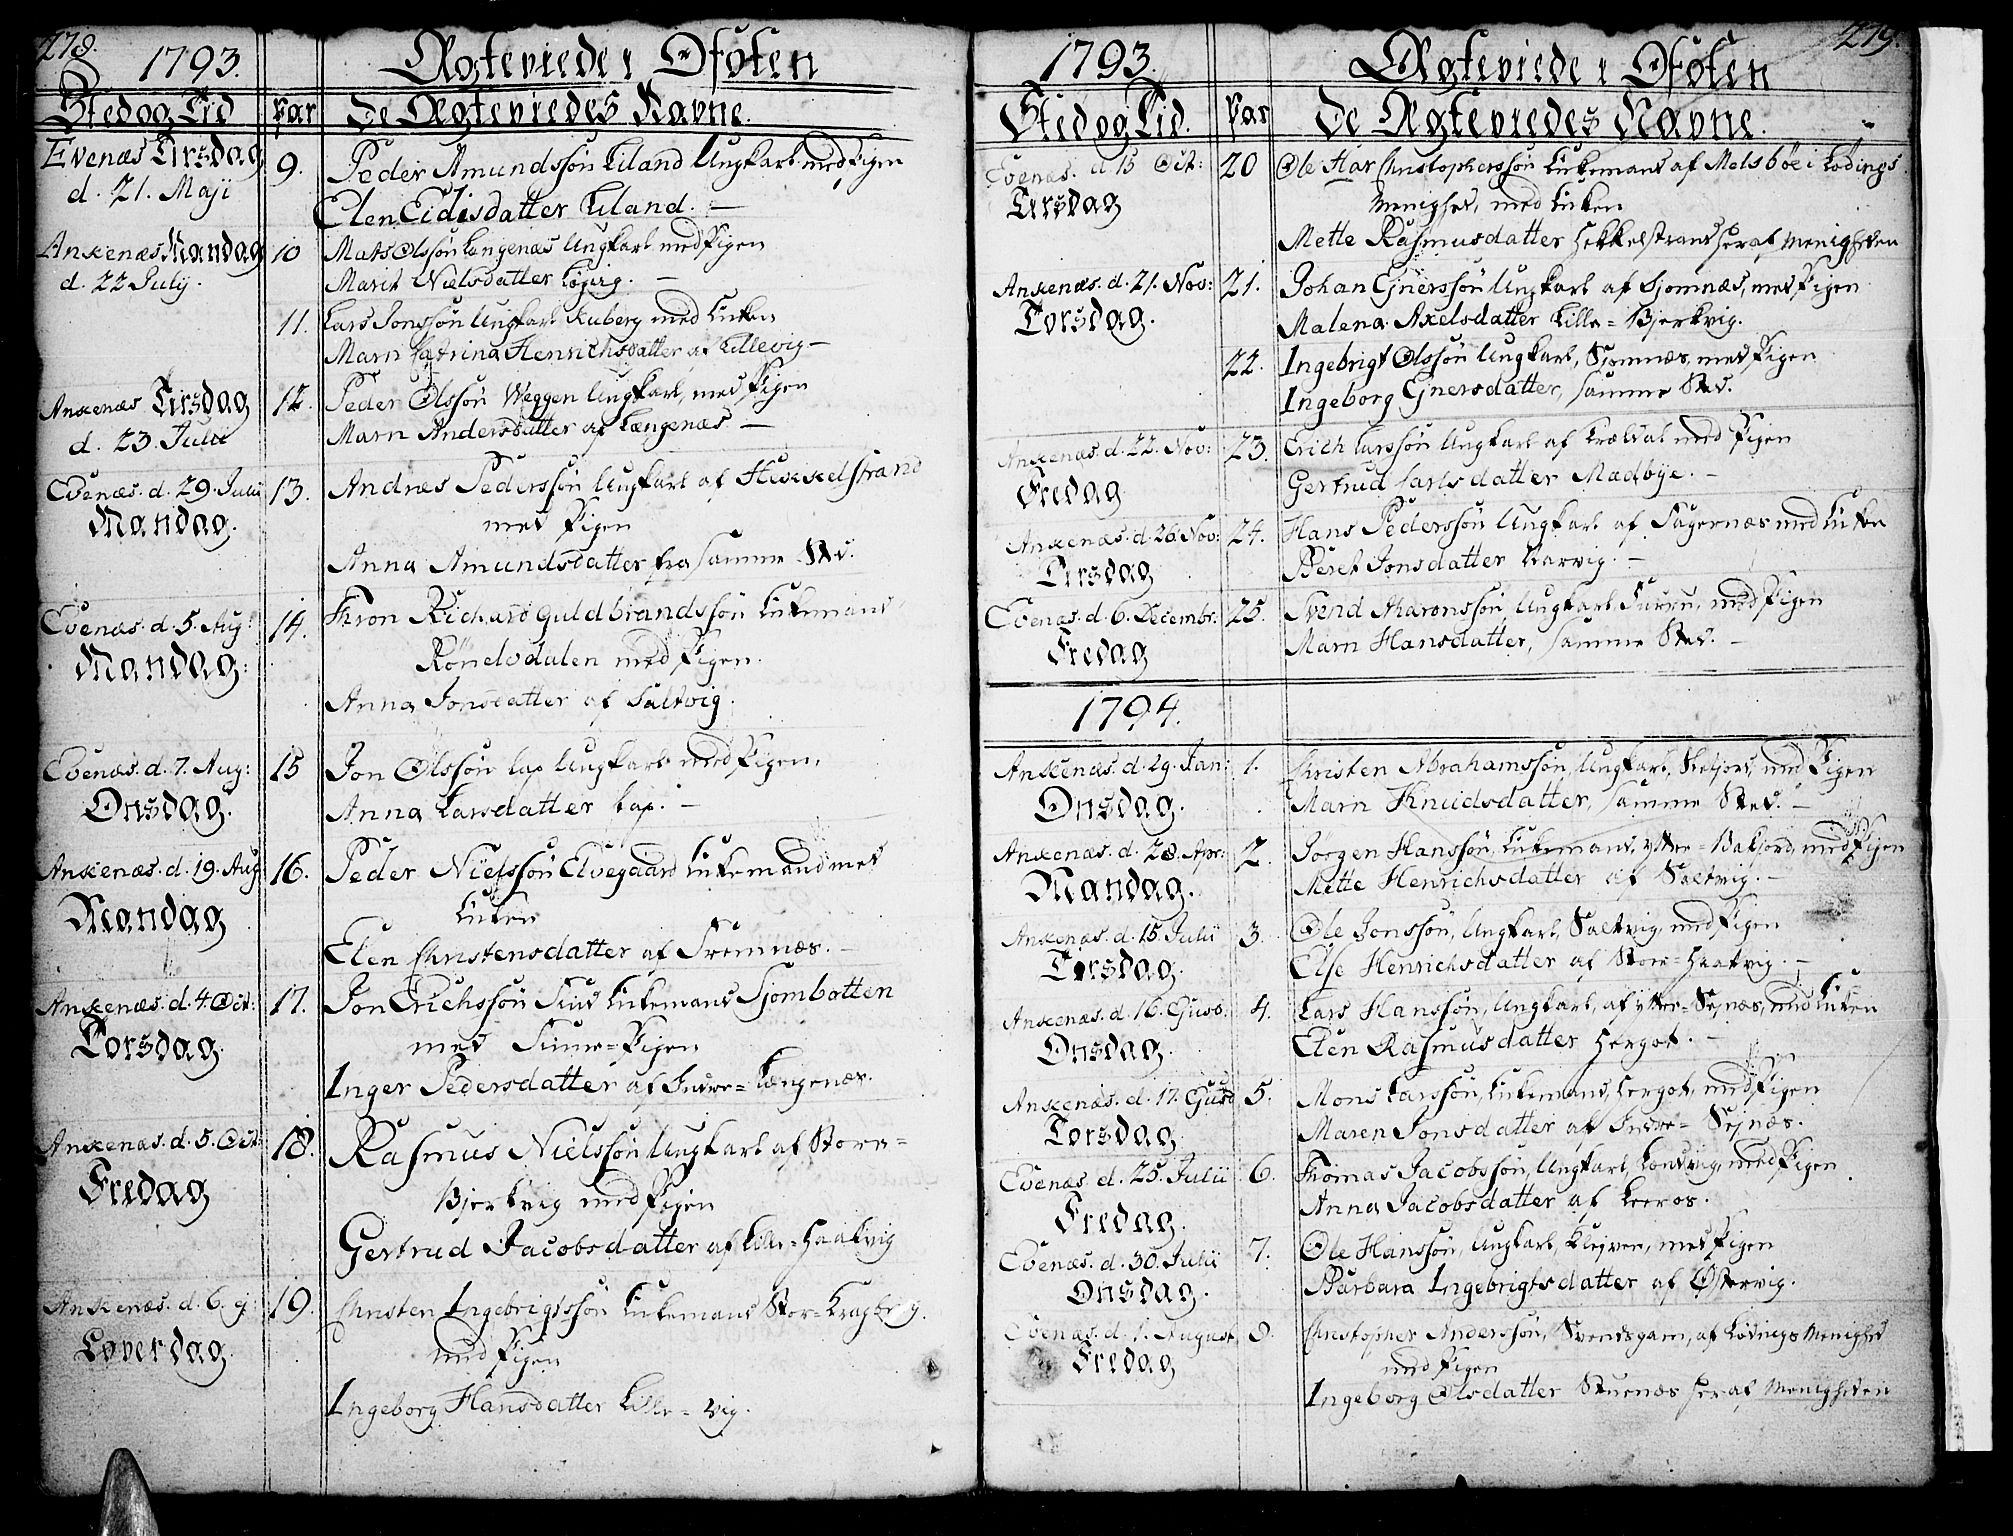 278.
1793.
Ægteviede i Ofoten
Sted og Tid
Par
De Ægteviedes Navne.
Evenæs Tirsdag
d. 21. Maji
9.
Peder Amundssøn Liland Ungkarl med Pigen
Elen Eidisdatter Liland. —
Ankenæs Mandag
d. 22 July.
10
Mats Olssøn Længenæs Ungkarl med Pigen
Marit Nielsdatter —
11.
Lars Jonssøn Ungkarl Kuberg med Enken
Marn Catrina Henrichsdatter af Lillevig —
Ankenæs Tirsdag
d. 23. Julii
12.
Peder Olssøn Weggen Ungkarl, med Pigen
Marn Andersdatter af Længenæs —
Evenæs. d. 29. Julii
Mandag.
13.
Andreas Pederssøn Ungkarl af Hekkelstrand
med Pigen
Anna Amundsdatter fra samme Sted.
Evenæs. d. 5. Aug:
Mandag:
14.
Thron Richard Guldbrandssøn Enkemand
med Pigen.
Anna Jonsdatter af Saltvig.
Evenæs. d. 7. Aug:
Onsdag.
15
Jon Olssøn Lap Ungkarl med Pigen,
Anna Larsdatter Lap. —
Ankenæs. d. 19. Aug
Mandag
16.
Peder Nielssøn Elvegaard Enkemand med
Enken
Elen Christensdatter af Tremnæs. —
Ankenæs. d. 4. Oct:
Torsdag
17.
Jon Erichssøn Find Enkemand Sjombotten
med Finne-Pigen
Inger Pedersdatter af Indre-Længenæs.
Ankenæs. d. 5. Oct:
Fredag
18.
Rasmus Nielssøn Ungkarl af Store-
Bjerkvig med Pigen
Gertrud Jacobsdatter af Lille-Haakvig
Ankenæs. d. 6. ej:
Løverdag.
19.
Christen Ingebrigtssøn Enkemand Stor-
med Pigen
Ingeborg Hansdatter Lille-Vig.
279.
1793.
Ægteviede i Ofoten
Sted og Tid.
Par
De Ægteviedes Navne.
Evenæs. d 15 Oct:
Tirsdag
20
Ole Har Christophersøn Enkemand af Melsbøe i Lødings
Menighed, med Enken
Mette Rasmusdatter Hekkelstrand her af Menigheden
Ankenæs. d. 21. Nov:
Torsdag.
21.
Johan Ejnerssøn Ungkarl af Sjomnæs, med Pigen
Malena Axelsdatter Lille-Bjerkvig.
22.
Ingebrigt Olssøn Ungkarl, Sjomnæs, med Pigen
Ingeborg Ejnersdatter, samme Sted.
Ankenæs. d. 22. Nov:
Fredag
23.
Erich Larssøn Ungkarl af Trældal med Pigen
Gertrud Carlsdatter Medbye. —
Ankenæs. d. 26 Nov:
Tirsdag
24.
Hans Pederssøn Ungkarl af Fagernæs med Enken
Beret Jonsdatter Narvig. —
Evenæs. d. 6. Decembr:
Fredag
25.
Svend Aharonssøn, Ungkarl, Furru, med Pigen
Marn Hansdatter, samme Sted. —
1794.
Ankenæs. d. 29. Jan:
Onsdag.
1.
Christen Abrahamssøn, Ungkarl, Skejord, med Pigen
Marn Knudsdatter, samme Sted. —
Ankenæs. d. 28. Apr:
Mandag.
2.
Jørgen Hanssøn, Enkemand, Ytter-Bakjord, med Pigen
Mette Henrichsdatter af Saltvig. —
Ankenæs. d. 15. Julii
Tirsdag.
3.
Ole Jonssøn, Ungkarl, Saltvig, med Pigen
Else Henrichsdatter af Stor-Haakvig. —
Ankenæs. d. 16. Ejusd:
Onsdag.
4.
Lars Hanssøn, Ungkarl, af Ytter-Sejnæs, med Enken
Elen Rasmusdatter Hergot. —
Ankenæs. d. 17. Ejusd
Torsdag.
5.
Mons Larssøn, Enkemand, Hergot, med Pigen
Maren Jonsdatter af Indre-Sejnæs.
Evenæs d. 25. Julii
Fredag.
6.
Thomas Jacobssøn, Ungkarl, med Pigen
Anna Jacobsdatter af Leeros.
Evenæs. d. 30. Julii
Onsdag.
7.
Ole Hanssøn, Ungkarl, Klejven, med Pigen
Barbara Ingebrigtsdatter af Østervig.
Evenæs. d. 1. August
Fredag
8.
Christopher Anderssøn, Svendsgam, af Lødings Menighed
med Pigen
Ingeborg Olsdatter Stuenæs her af Menigheden